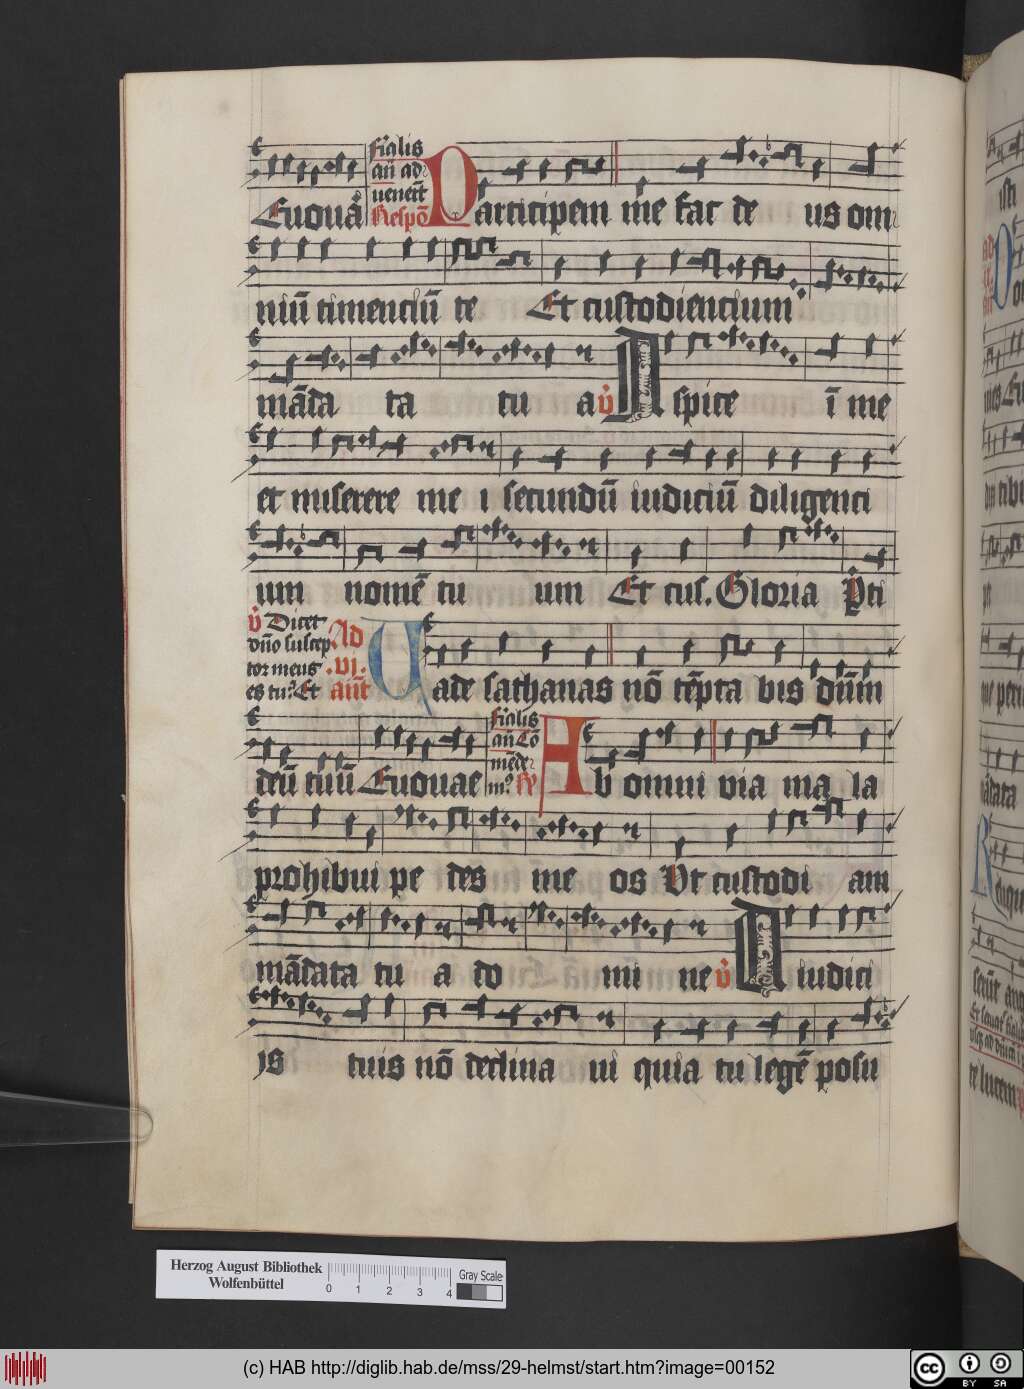 Euouā fīalis
añ ad
ueneīt
Respō Participem me fac de us om
niū timenciū te Et custodiencium
māda ta tu a v̊ Aspice ī me
et miserere me i secundū iudiciū diligenci
um nomē tu um Et cus. Gloria Pti
v̊ Dicet
dño suscep
tor meus
es tu. Et
Ad
.vi.
añt
Vade sathanas nō tēpta bis dūm
deū tuū Euouae
fīalis
añ Cō
mēde
m̊ Ab omni via ma la
prohibui pe des me os Vt custodi am
mādata tu a do mi ne v̊ A iudici
is tuis nō declina ui quia tu legē posu
Herzog August Bibliothek
Wolfenbüttel
0 1 2 3 4
Gray Scale
(c) HAB http://diglib.hab.de/mss/29-helmst/start.htm?image=00152
cc BY SA